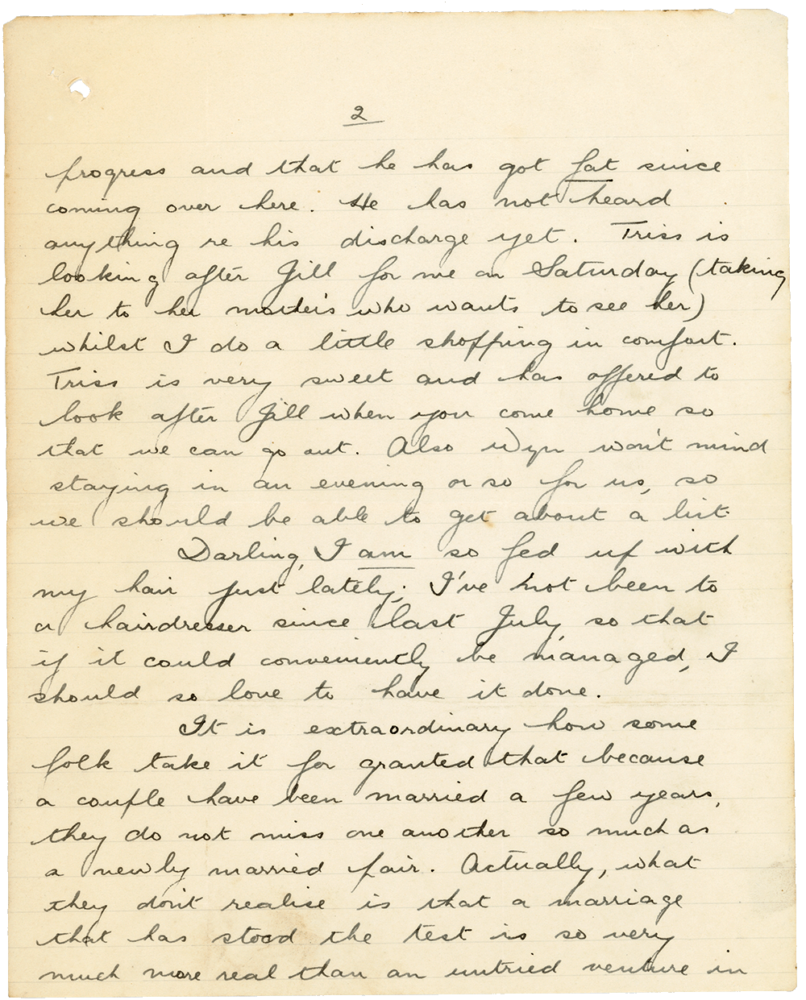 2
progress and that he has got fat since
coming over here. He has not heard
anything re his discharge yet. Triss is
looking after Jill for me on Saturday (taking
her to her mother's who wants to see her)
whilst I do a little shopping in comfort.
Triss is very sweet and has offered to
look after Jill when you come home so
that we can go out. Also Wyn won't mind
staying in an evening or so for us, so
we should be able to get about a bit
Darling, I am so fed up with
my hair just lately; I've not been to
a hairdresser since last July, so that
if it could conveniently be managed, I
should so love to have it done.
It is extraordinary how some
folk take it for granted that because
a couple have been married a few years,
they do not miss one another so much as
a newly married pair. Actually, what
they don't realise is that a marriage
that has stood the test is so very
much more real than an untried venture in